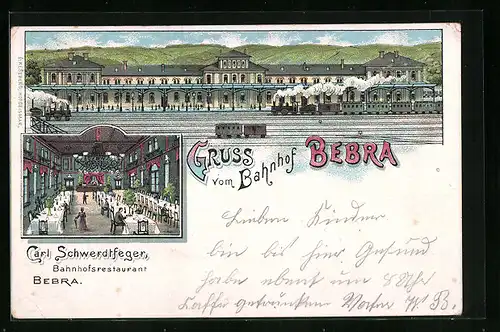 GRUSS
vom Bahnhof BEBRA
Carl Schwerdtfeger,
Bahnhofsrestaurant
BEBRA.
Lieben Kinder
bin bis hier Gesund
habe ebent um 8 Uhr
Kaffe getrunken Vater W. B.